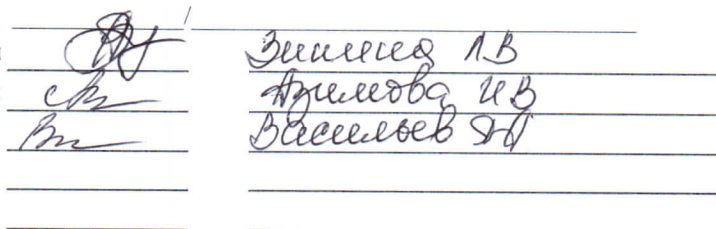 Зимина Л.В
Азимова И.В
Васильев